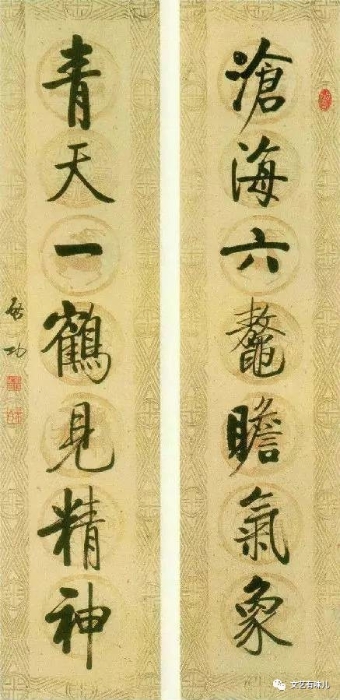 滄海六鼇瞻氣象
青天一鶴見精神
啟功
文艺百味儿